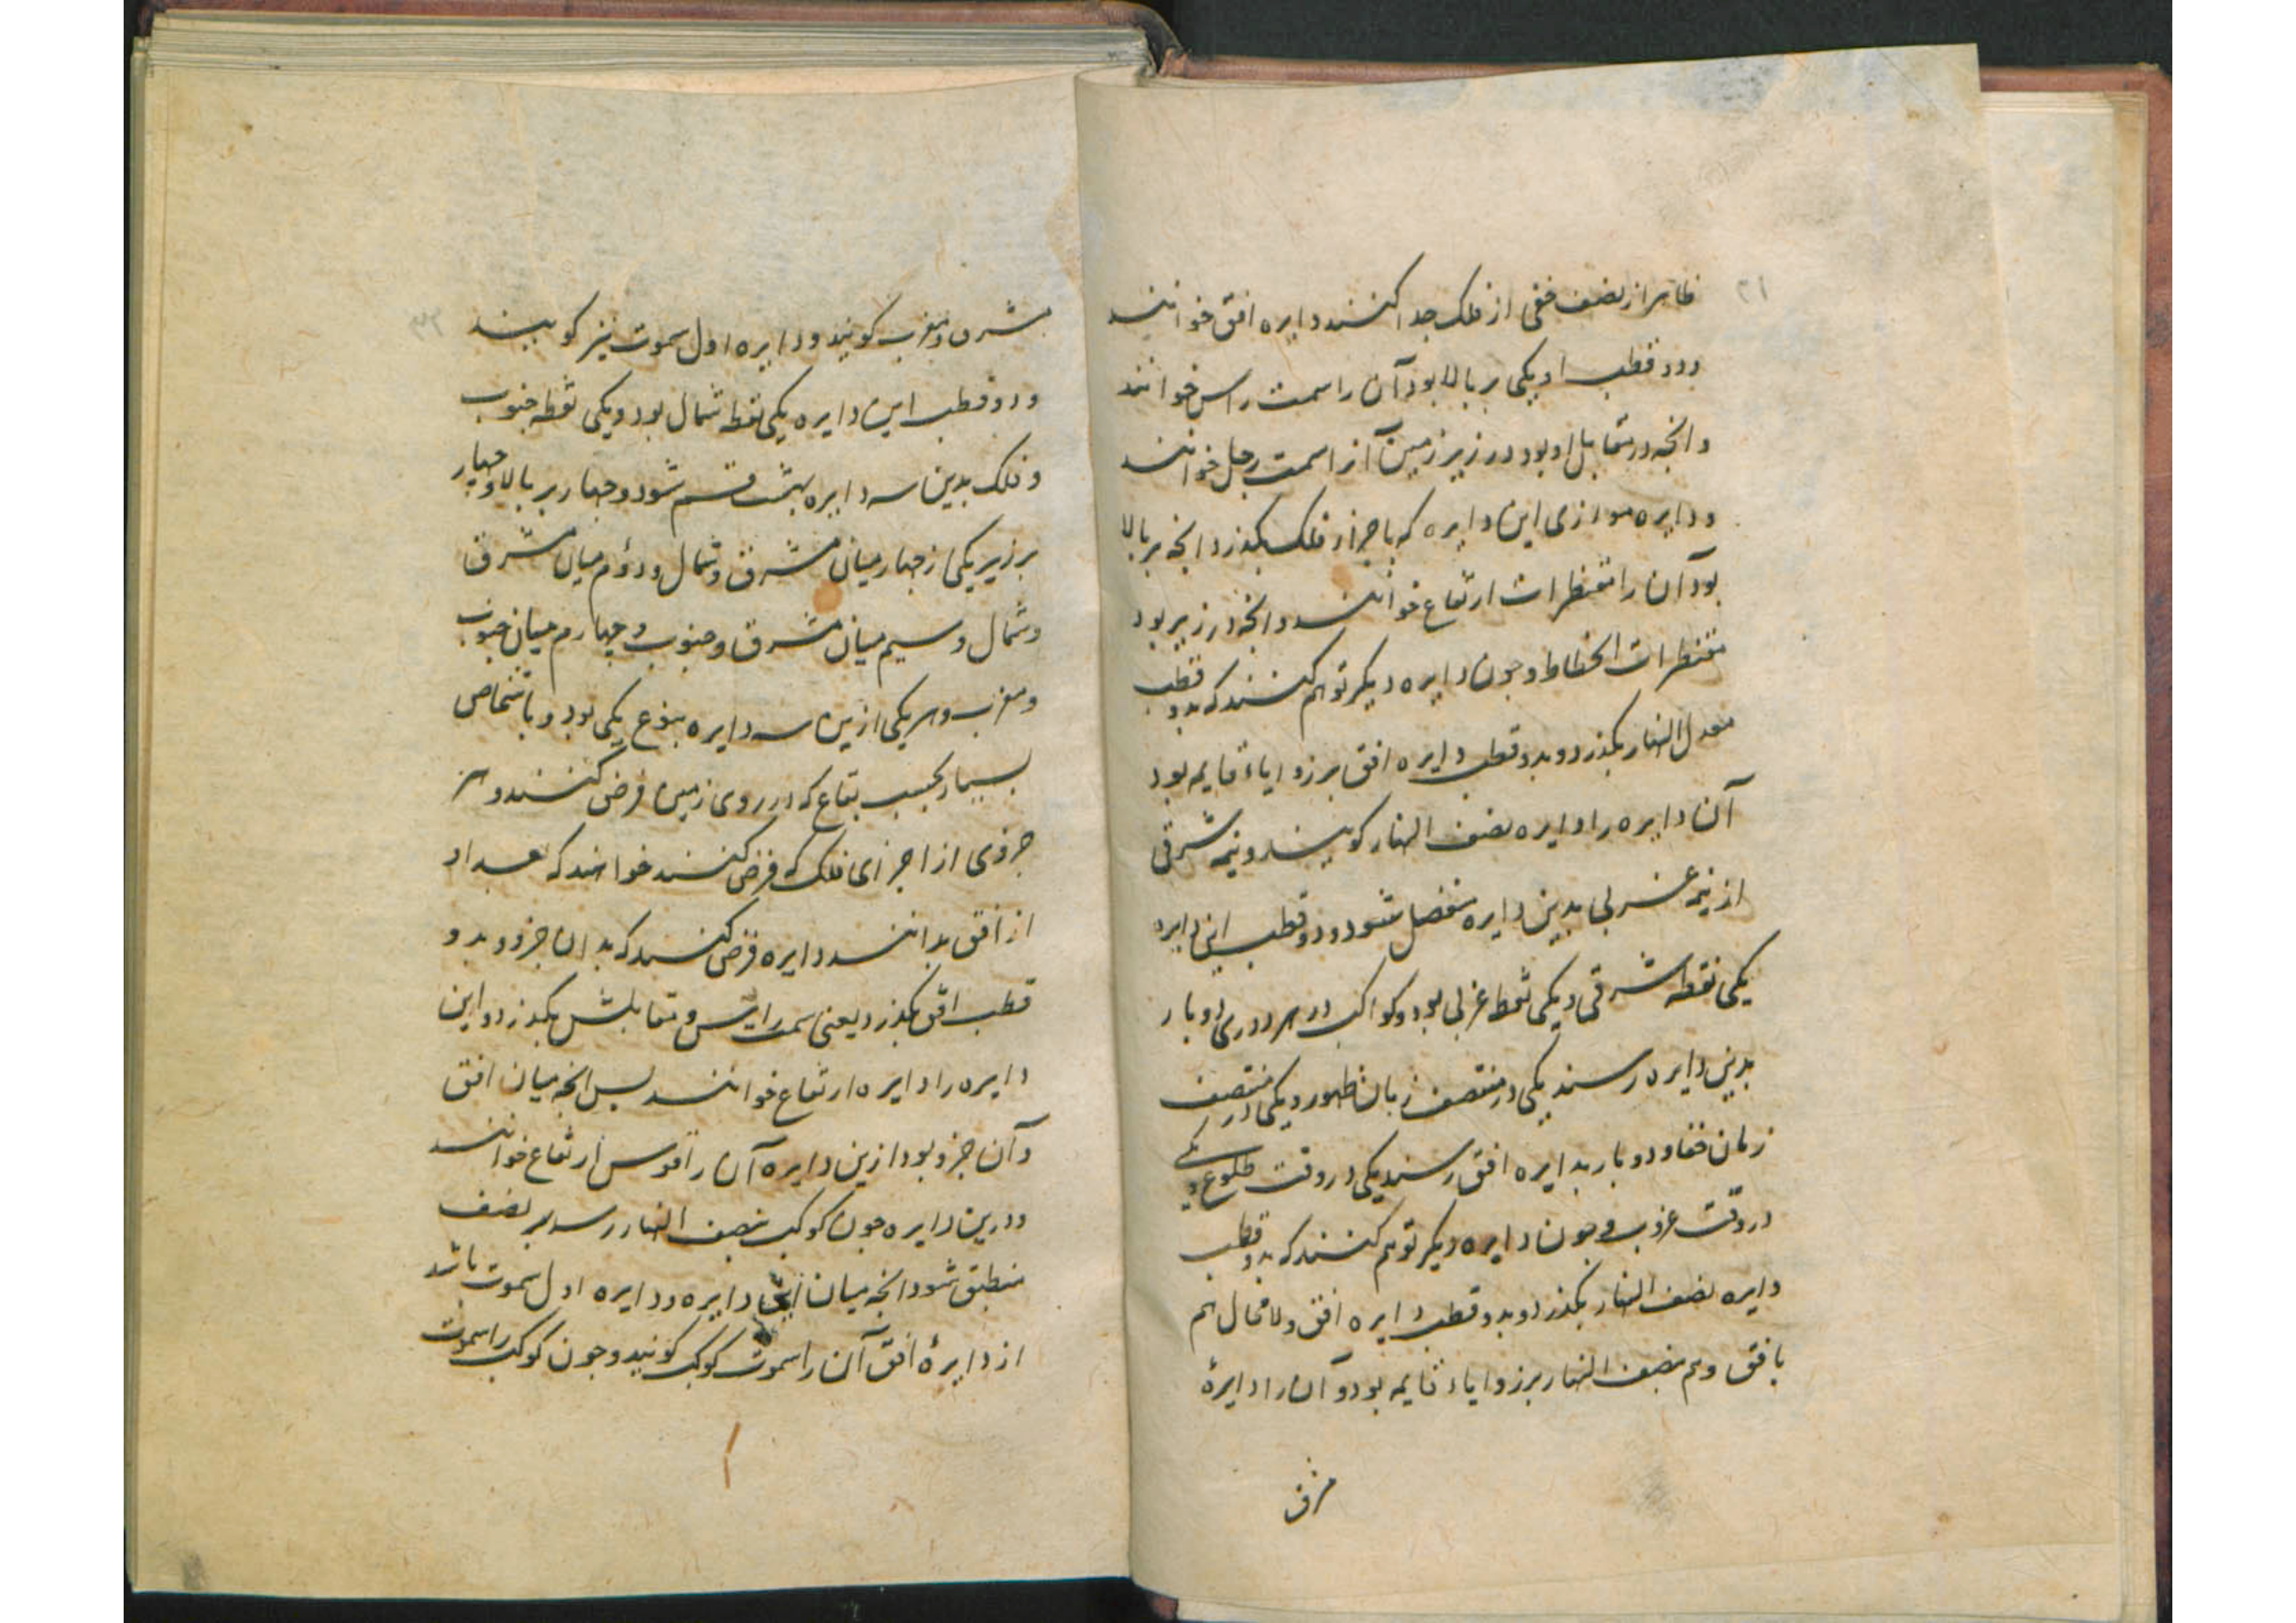 ۳۱
ظاهر از نصف خفی از فلک جدا کنند دایره افق خوانند
ودو قطب او یکی بر بالا بود آن را سمت راس خوانند
وانجه در مقابل او بود در زیر زمین آنرا سمت رجل خوانند
ودایره موازی این دایره که باجزا فلک بکذرد انجه بر بالا
بود آن را مقنطرات ارتفاع خوانند وانجه در زیر بود
مقنطرات انحطاط وجون دایره دیکر توهم کنند که بدو قطب
معدل النهار بکذرد وبدو قطب دایره افق بر زوایاء قایمه بود
آن دایره را دایره نصف النهار کویند ونیمه شرقی
از نیمه غربی بدین دایره منفصل شود ودو قطب این دایره
یکی نقطه شرقی ویکی نقطه غربی بود وکواکب در هر دوری دو بار
بدین دایره رسند یکی در منتصف زمان ظهور ویکی در منتصف
زمان خفا ودو بار بدایره افق رسند یکی در وقت طلوع ویکی
در وقت غروب وجون دایره دیکر توهم کنند که بدو قطب
دایره نصف النهار بکذرد وبدو قطب دایره افق ولا محال هم
بافق وهم بنصف النهار بر زوایاء قایمه بود وآن را دایرهٔ
مشرق
۳۲
مشرق ومغرب کویند ودایره اول سموت نیز کویند
ودو قطب این دایره یکی نقطه شمال بود ویکی نقطه جنوب
وفلک بدین سه دایره بهشت قسم شود وجهار بر بالا وجهار
بر زیر یکی از جهار میان مشرق وشمال ودوُم میان مشرق
وشمال وسیم میان مشرق وجنوب وجهارم میان جنوب
ومغرب وهر یکی ازین سه دایره بنوع یکی بود وباشخاص
بسیار بحسب بقاع که در روی زمین فرض کنند وهر
جزوی از اجزای فلک که فرض کنند خواهند که بعد او
از افق بدانند دایره فرض کنند که بدان جزو وبدو
قطب افق بکذرد یعنی سمت راس ومقابلش بکذرد واین
دایره را دایره ارتفاع خوانند بس انجه میان افق
وآن جزو بود ازین دایره آن را قوس ارتفاع خوانند
ودرین دایره جون کوکب بنصف النهار رسد بر نصف
منطبق شود انجه میان این دایره ودایره اول سموت باشد
از دایرهٔ افق آن را سموت کوکب کویند وجون کوکب را سموت